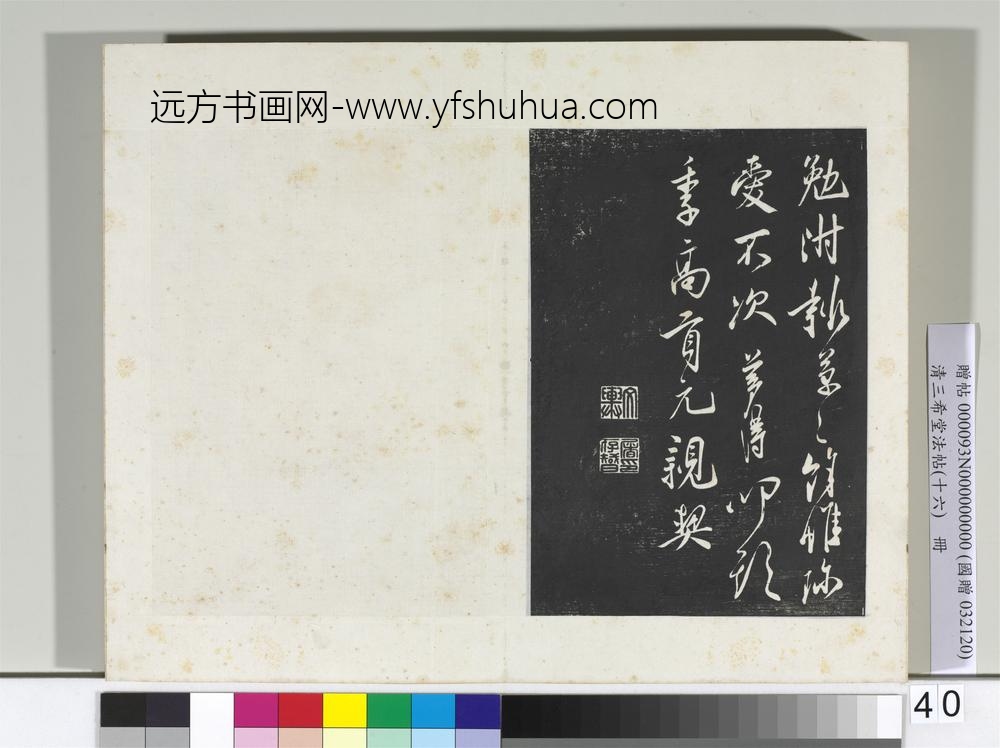 远方书画网-www.yfshuhua.com
勉附報草々餘惟珍
愛不次 叩頭
季高貢元親契
贈帖 000093N000000000 (國贈 032120)
清三希堂法帖(十六) 冊
40